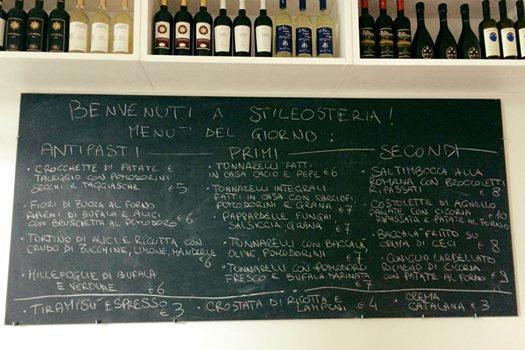 BENVENUTI A STILEOSTERIA!
MENU' DEL GIORNO:
ANTIPASTI
• CROCCHETTE DI PATATE E
TALEGGIO CON POMODORINI
SECCHI E TAGGIASCHE €5
• FIORI DI ZUCCA AL FORNO
RIPIENI DI BUFALA E ALICI
CON BRUSCHETTA AL POMODORO €6
• TORTINO DI ALICI E RICOTTA CON
CRUDO DI ZUCCHINE, LIMONE, MANDORLE
€6
• MILLEFOGLIE DI BUFALA
E VERDURE €6
PRIMI
• TONNARELLI FATTI
IN CASA CACIO E PEPE €6
TONNARELLI INTEGRALI
FATTI IN CASA CON CARCIOFI,
POMODORINI E GRANA €7
• PAPPARDELLE FUNGHI
SALSICCIA GRANA €7
• TONNARELLI CON BACCALÀ,
OLIVE POMODORINI €7
• TONNARELLI CON POMODORO
FRESCO E BUFALA MARINATA
€7
SECONDI
SALTIMBOCCA ALLA
ROMANA CON BROCCOLETTI
RIPASSATI €8
• COSTOLETTE DI AGNELLO
PANATE CON CICORIA €10
RIPASSATA E PATATE AL FORNO
• BACCALÀ FRITTO SU
CREMA DI CECI €8
• CONIGLIO LARDELLATO
RIPIENO DI CICORIA
CON PATATE AL FORNO €9
• TIRAMISÙ ESPRESSO €3
• CROSTATA DI RICOTTA E
LAMPONI €4
• CREMA
CATALANA €3